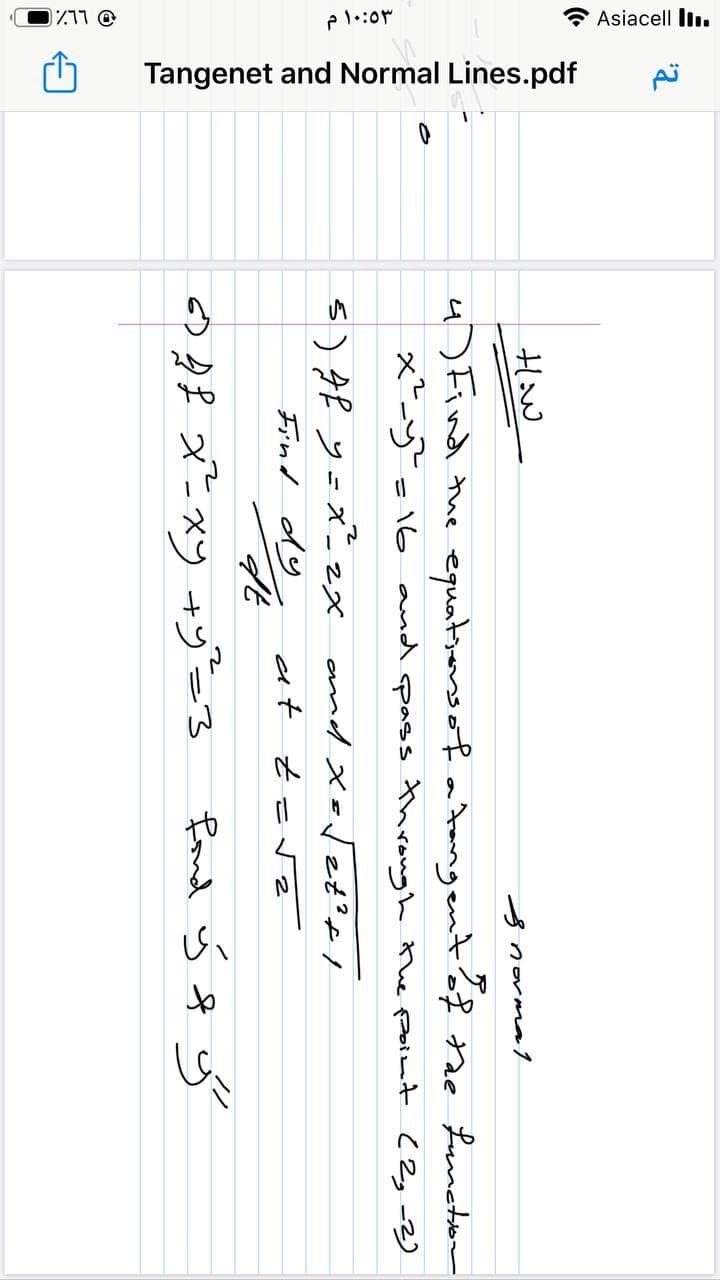 Asiacell ١٠:٥٣ م ٪٦٦
تم Tangenet and Normal Lines.pdf
H.W
& normal
4) Find the equations of a tangent of the function
x²-y² = 16 and pass through the point (2, -2)
5) If y = x²-2x and x = √2t²+1
Find dy/dt at t = √2
6) If x²-xy+y²=3 find y' & y''